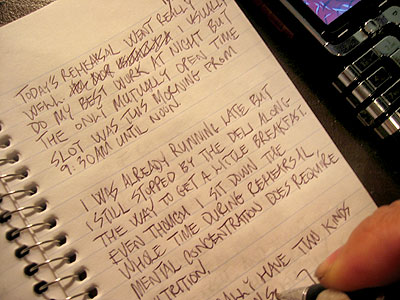 TODAY'S REHEARSAL WENT REALLY
WELL. I USUALLY
DO MY BEST WORK AT NIGHT BUT
THE ONLY MUTUALLY OPEN TIME
SLOT WAS THIS MORNING FROM
9:30AM UNTIL NOON.
I WAS ALREADY RUNNING LATE BUT
I STILL STOPPED BY THE DELI ALONG
THE WAY TO GET A LITTLE BREAKFAST.
EVEN THOUGH I SIT DOWN THE
WHOLE TIME DURING REHEARSAL
MENTAL CONCENTRATION DOES REQUIRE
NUTRITION.
HAVE TWO KINDS